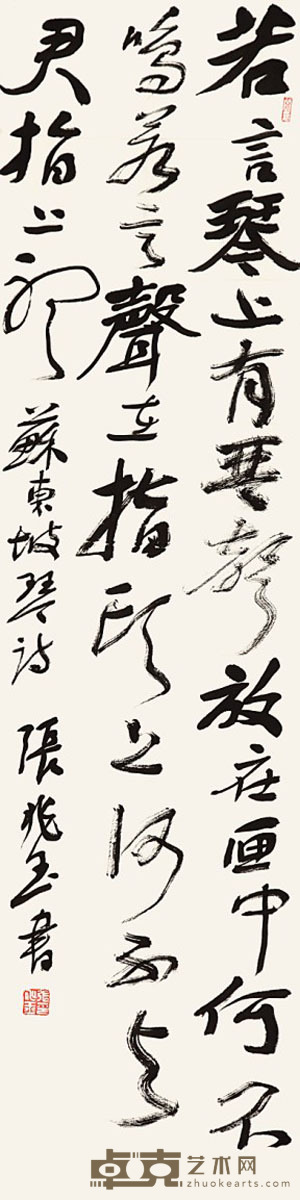 若言琴上有琴聲放在匣中何不
鳴若言聲在指頭上何不与
君指上聽
蘇東坡琴詩 張兆玉書
卓克艺术网
zhuokearts.com